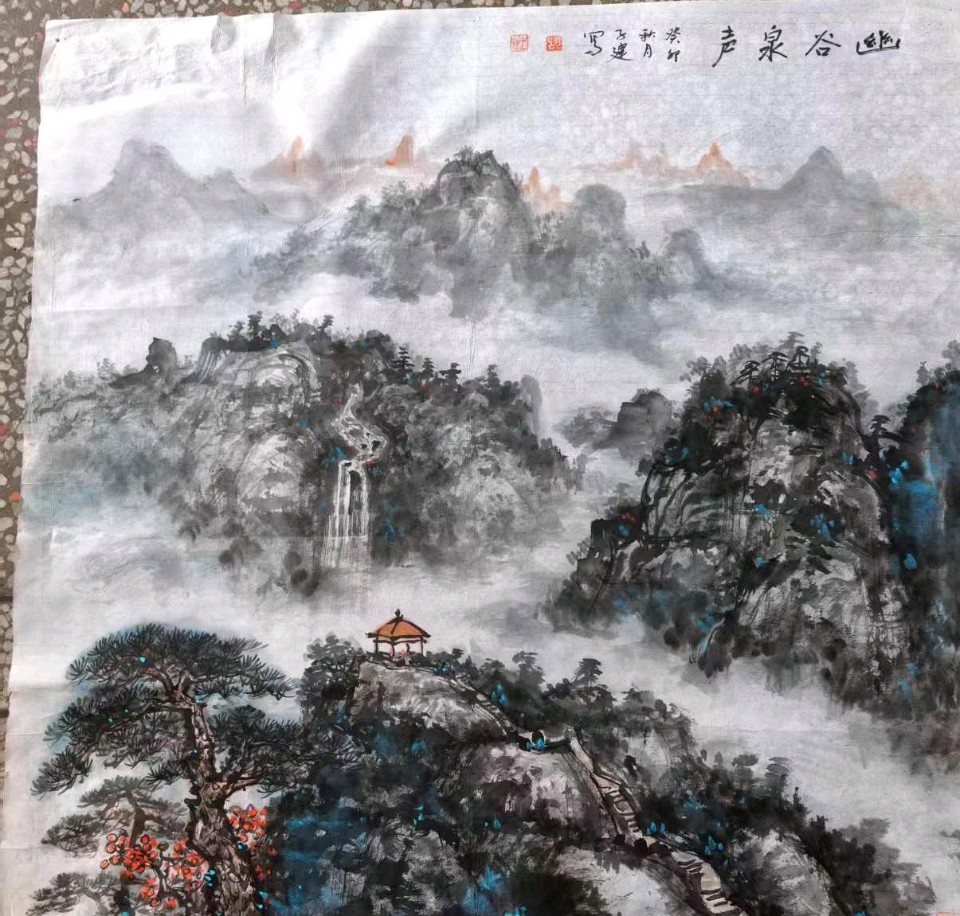 幽谷泉声
癸卯
秋月
子建
写